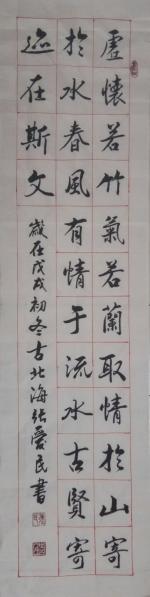 虛懷若竹氣若蘭取情於山寄
於水春風有情于流水古賢寄
迹在斯文
歲在戊戌初冬古北海張愛民書